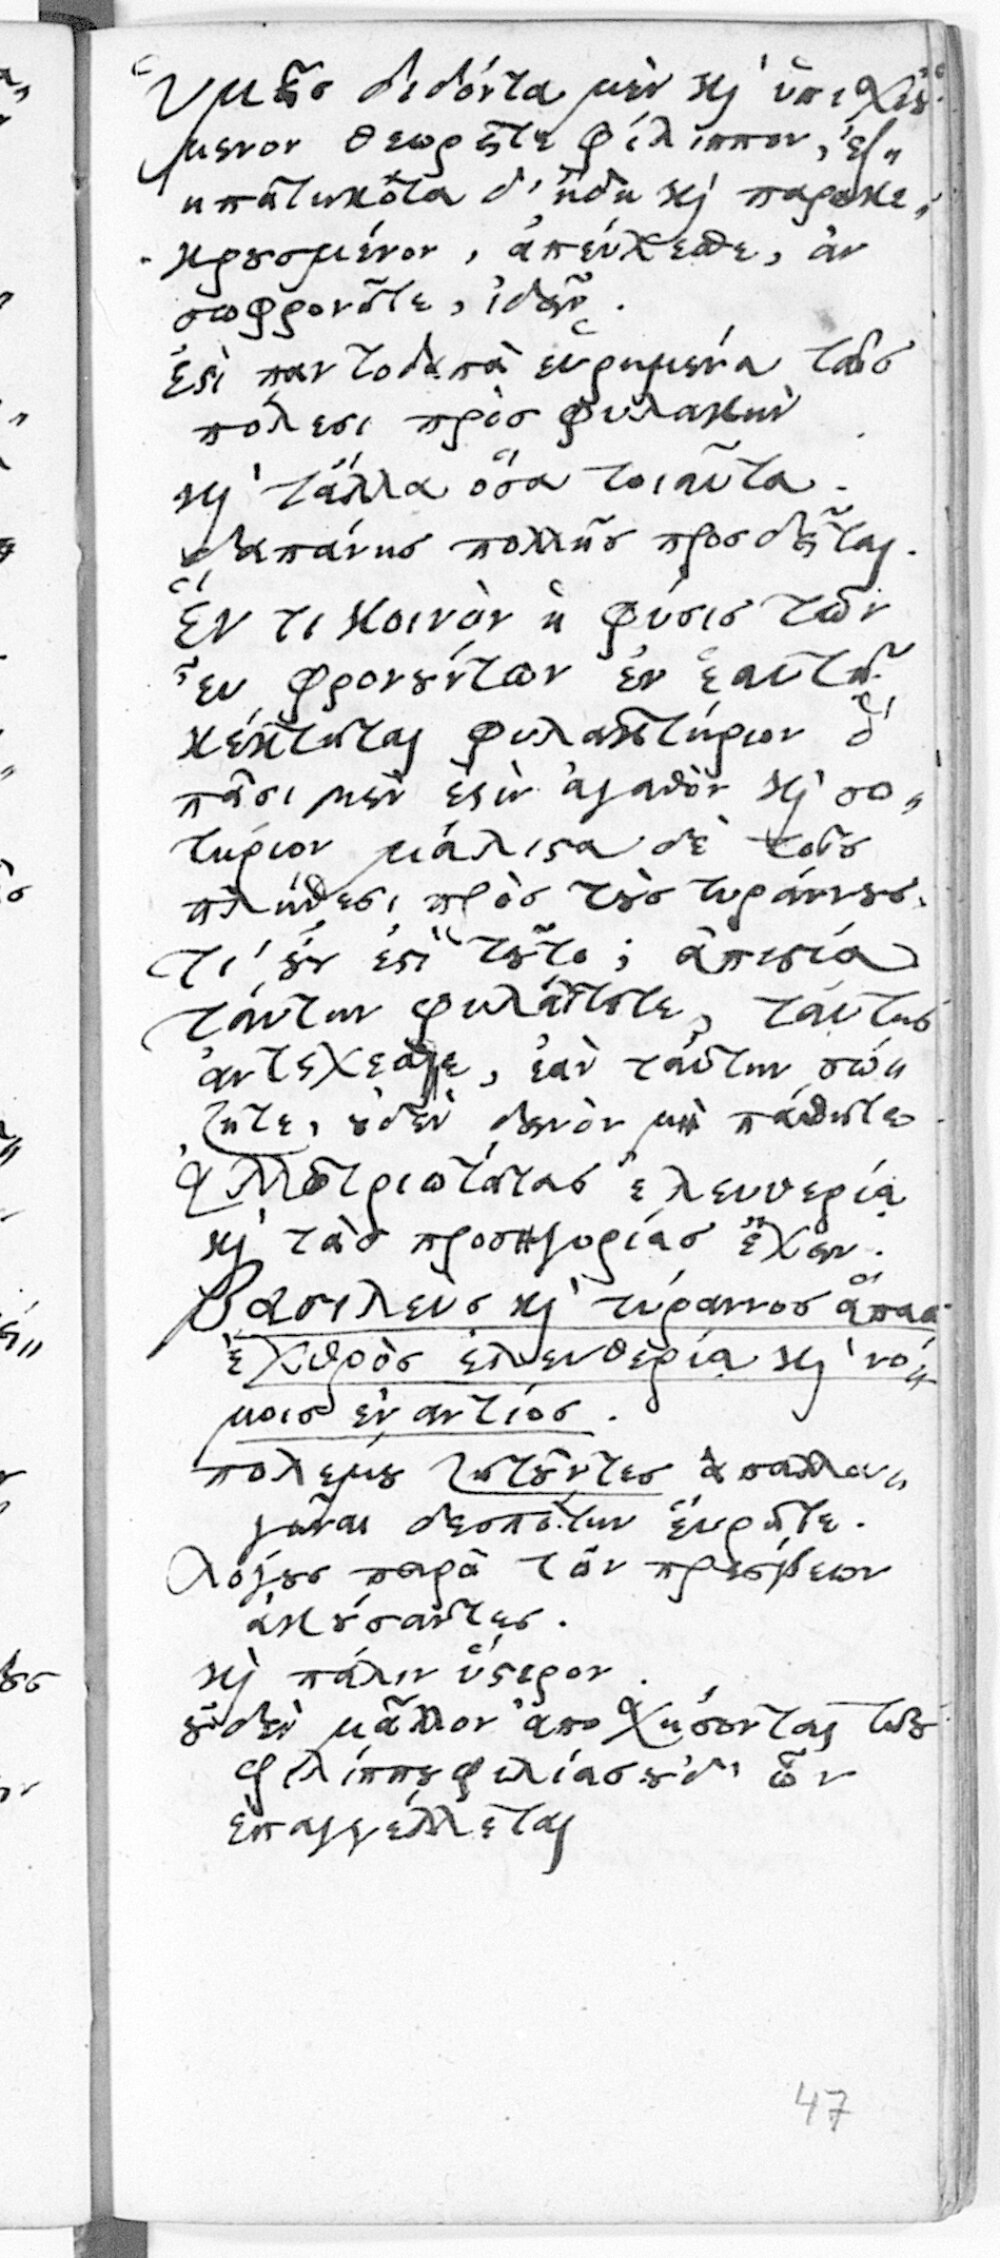 Ὑμεῖς διδόντα μὲν καὶ ὑπισχνού
μενον θεωρεῖτε Φίλιππον, ἐξ〃
ηπατηκότα δ' ἤδη καὶ παρακε〃
κρουσμένον, ἀπεύχεσθε, ἂν
σωφρονῆτε, ἰδεῖν.
Ἐστὶ παντοδαπὰ εὑρημένα ταῖς
πόλεσι πρὸς φυλακὴν
καὶ τἄλλα ὅσα τοιαῦτα.
δαπάνης πολλῆς προσδεῖται.
Ἕν τι κοινὸν ἡ φύσις τῶν
εὖ φρονούντων ἐν ἑαυτῇ
κέκτηται φυλακτήριον ὃ
πᾶσι μὲν ἐστὶν ἀγαθὸν καὶ σω〃
τήριον μάλιστα δὲ τοῖς
πλήθεσι πρὸς τοὺς τυράννους.
τί οὖν ἐστὶ τοῦτο; ἀπιστία
ταύτην φυλάττετε, ταύτης
ἀντέχεσθε, ἐὰν ταύτην σώ〃
ζητε, οὐδὲν δεινὸν μὴ πάθητε
ἀλλοτριωτάτας ἐλευθερίᾳ
καὶ τὰς προσηγορίας ἔχων.
Βασιλεὺς καὶ τύραννος ἅπας
ἐχθρὸς ἐλευθερίᾳ καὶ νό〃
μοις ἐναντίος.
πολέμου ζητοῦντες ἀπαλλα〃
γῆναι δεσπότην εὕρητε.
λόγους παρὰ τῶν πρέσβεων
ἀκούσαντες.
καὶ πάλιν ὕστερον.
οὐδὲν μᾶλλον ἀποσχήσονται τῆς
Φιλίππου φιλίας οὐδ' ὧν
ἐπαγγέλλεται
47